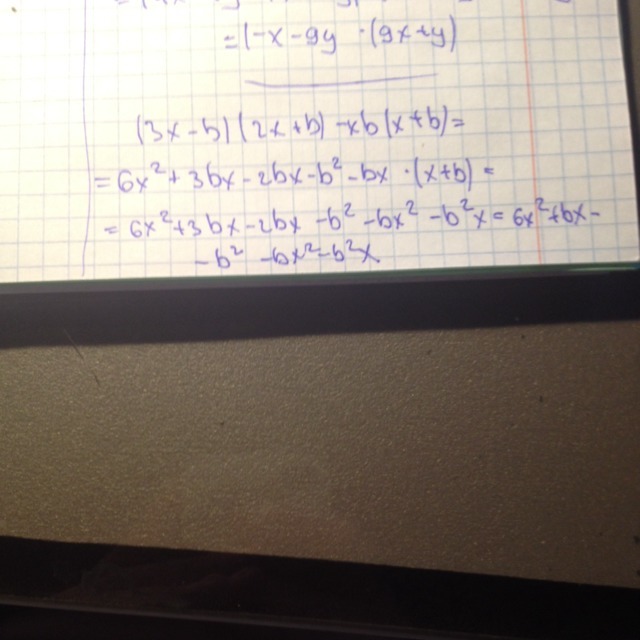 =(-x-9y ·(9x+y)
(3x-b)(2x+b)-xb(x+b)=
=6x²+3bx-2bx-b²-bx·(x+b)=
=6x²+3bx-2bx-b²-bx²-b²x=6x²+bx-
-b²-bx²-b²x